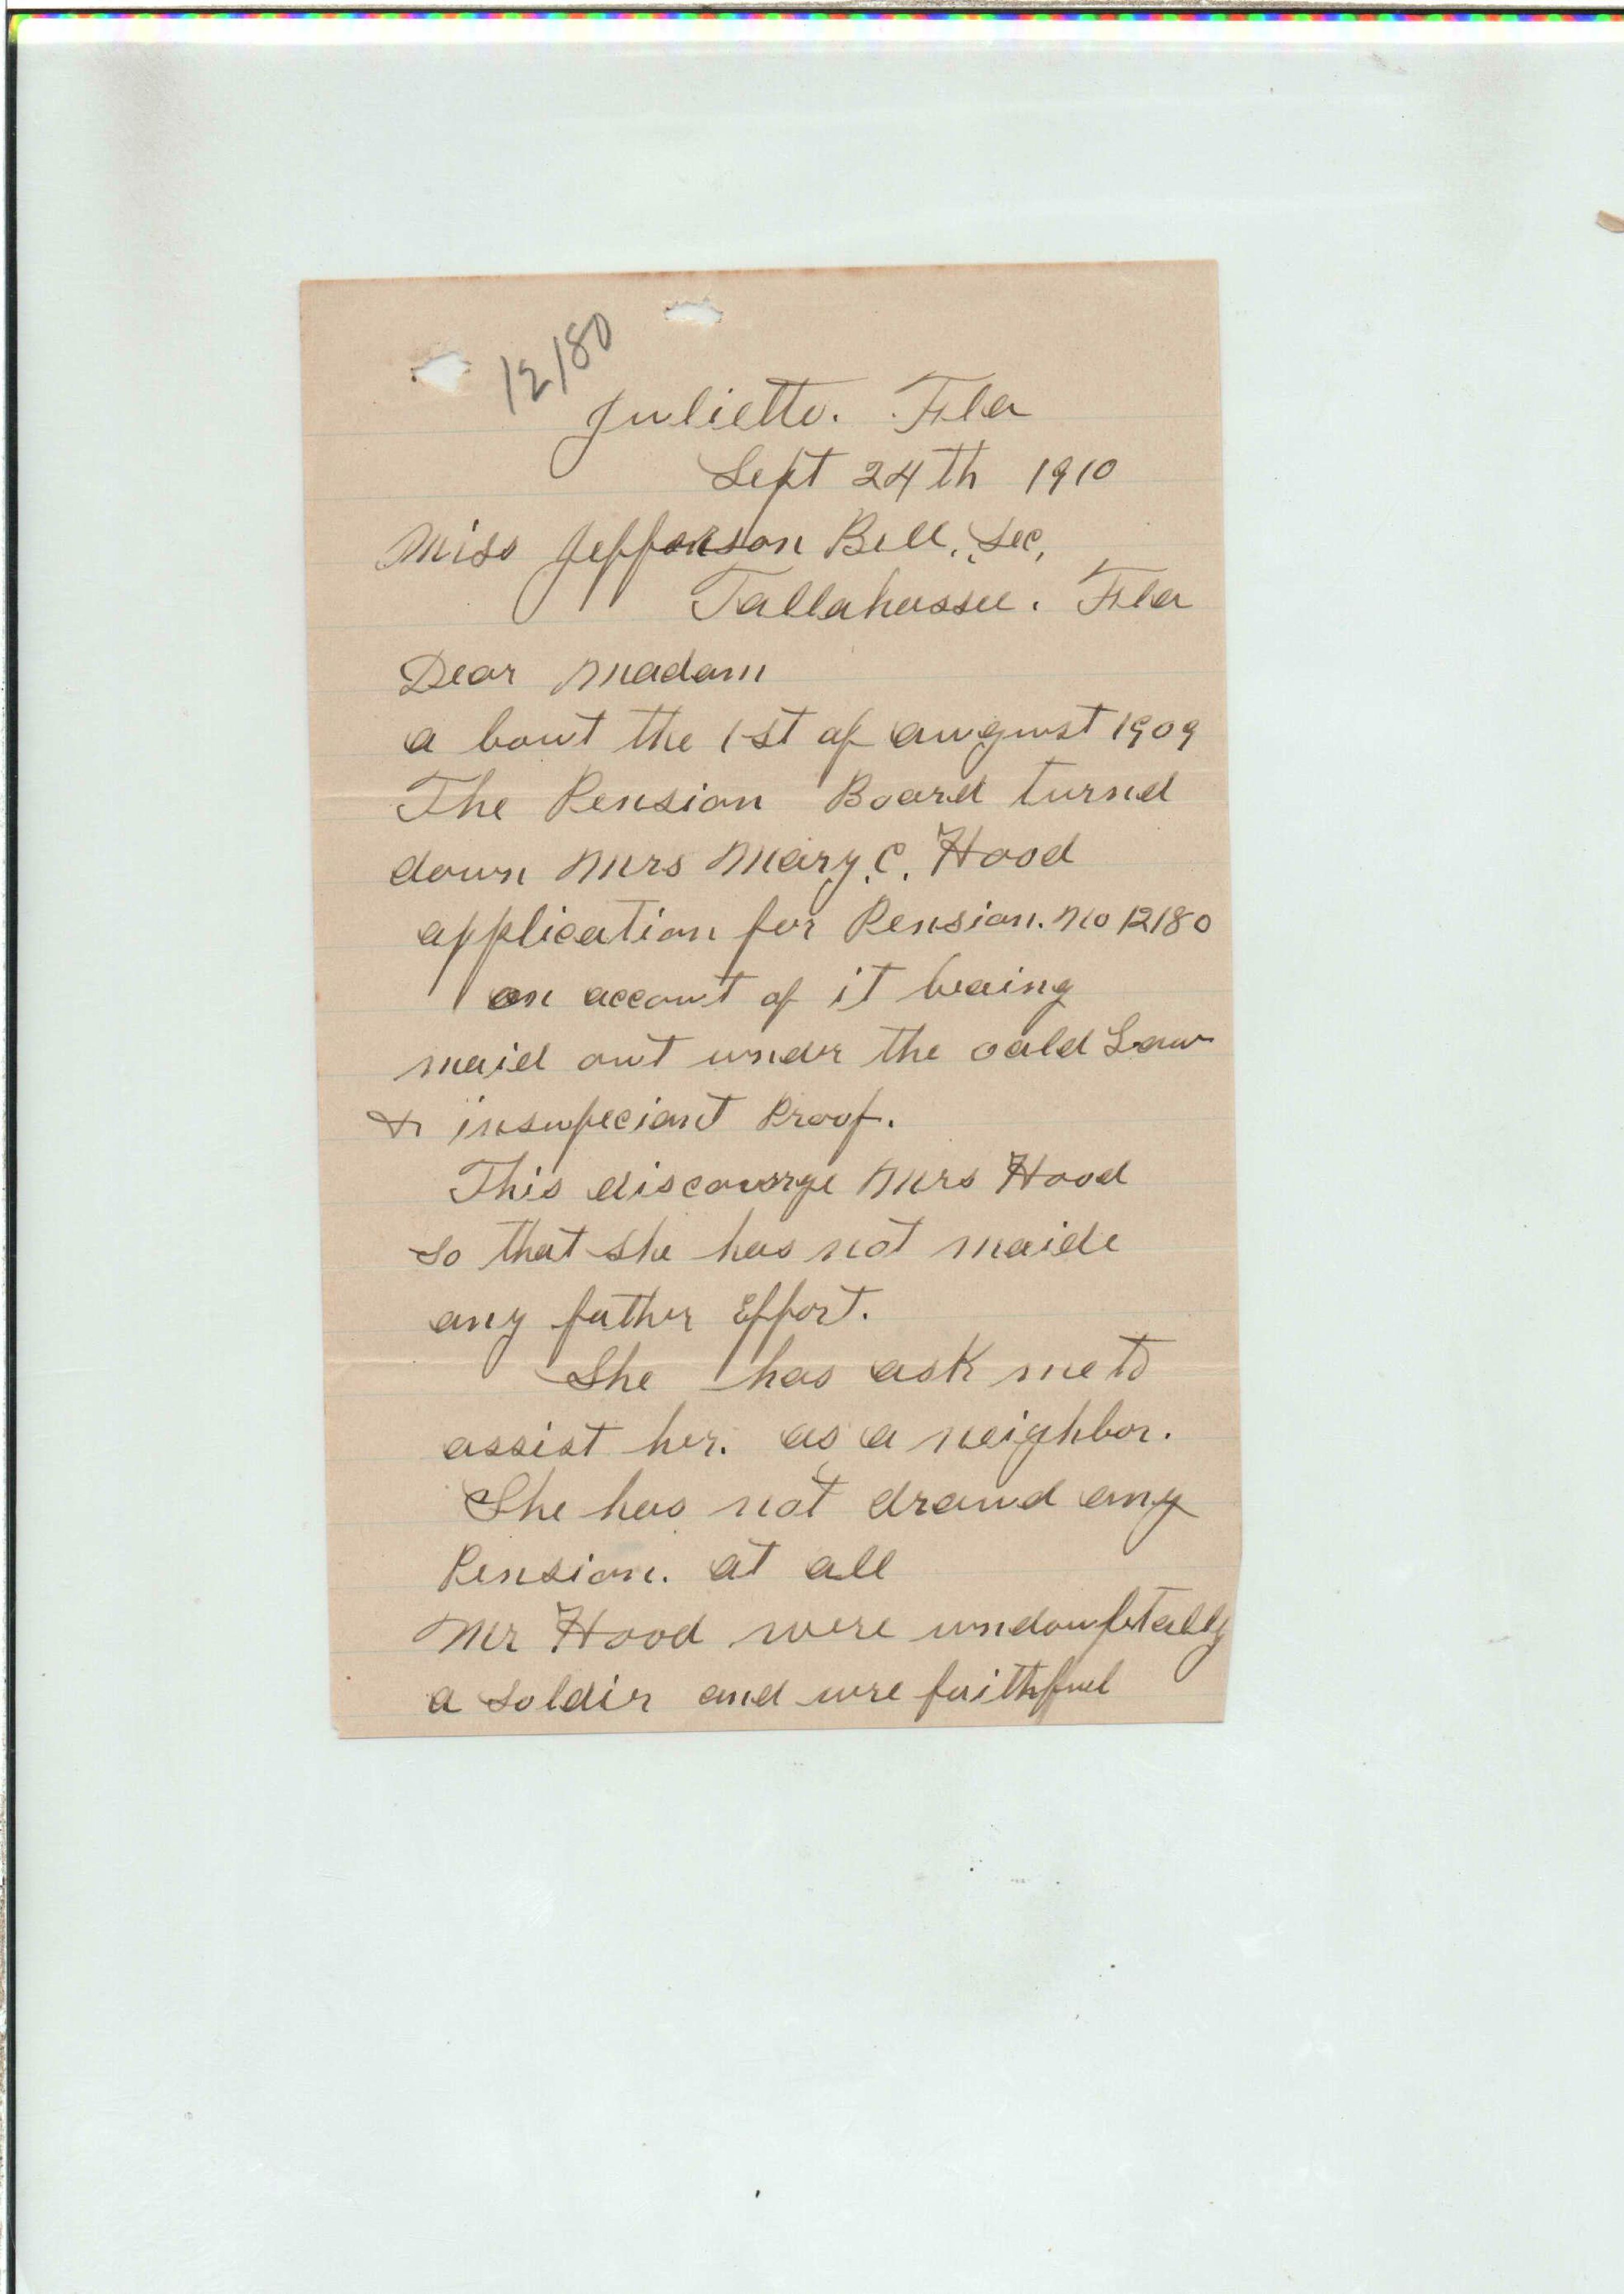 12180
Juliette. Fla
Sept 24th 1910
Miss Jefferson Bell, Sec,
Tallahassee. Fla
Dear Madam
a bout the 1st of august 1909
The Pension Board turnd
down Mrs Mary. C. Hood
application for Pension. No 12180
on accout of it beaing
maid out under the oald Law
& insufficiant Proof.
This discourge Mrs Hood
so that she has not maide
any father Effort.
She has ask me to
assist her. as a neighbor.
She has not drawd any
Pension. at all
Mr Hood were undoubtably
a soldir and wre faithful